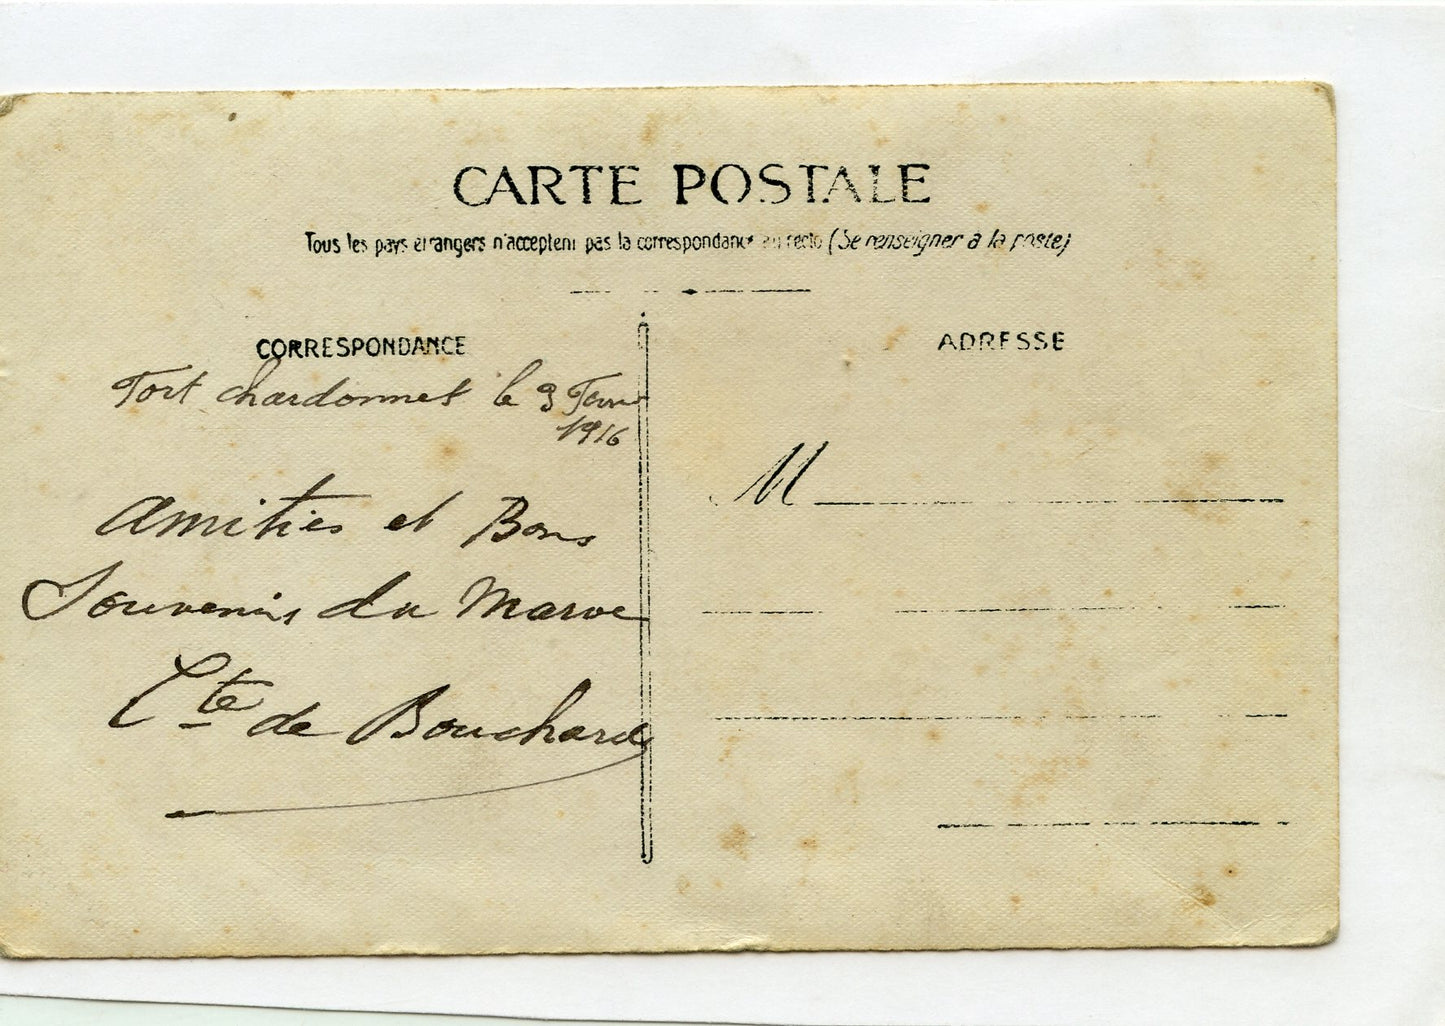 CARTE POSTALE
Tous les pays étrangers n'acceptent pas la correspondance au recto (Se renseigner à la poste)
CORRESPONDANCE
ADRESSE
Fort Chardonnet le 3
1916
Amitiés et Bons
Souvenirs du Maroc
Cte de Bouchard
M